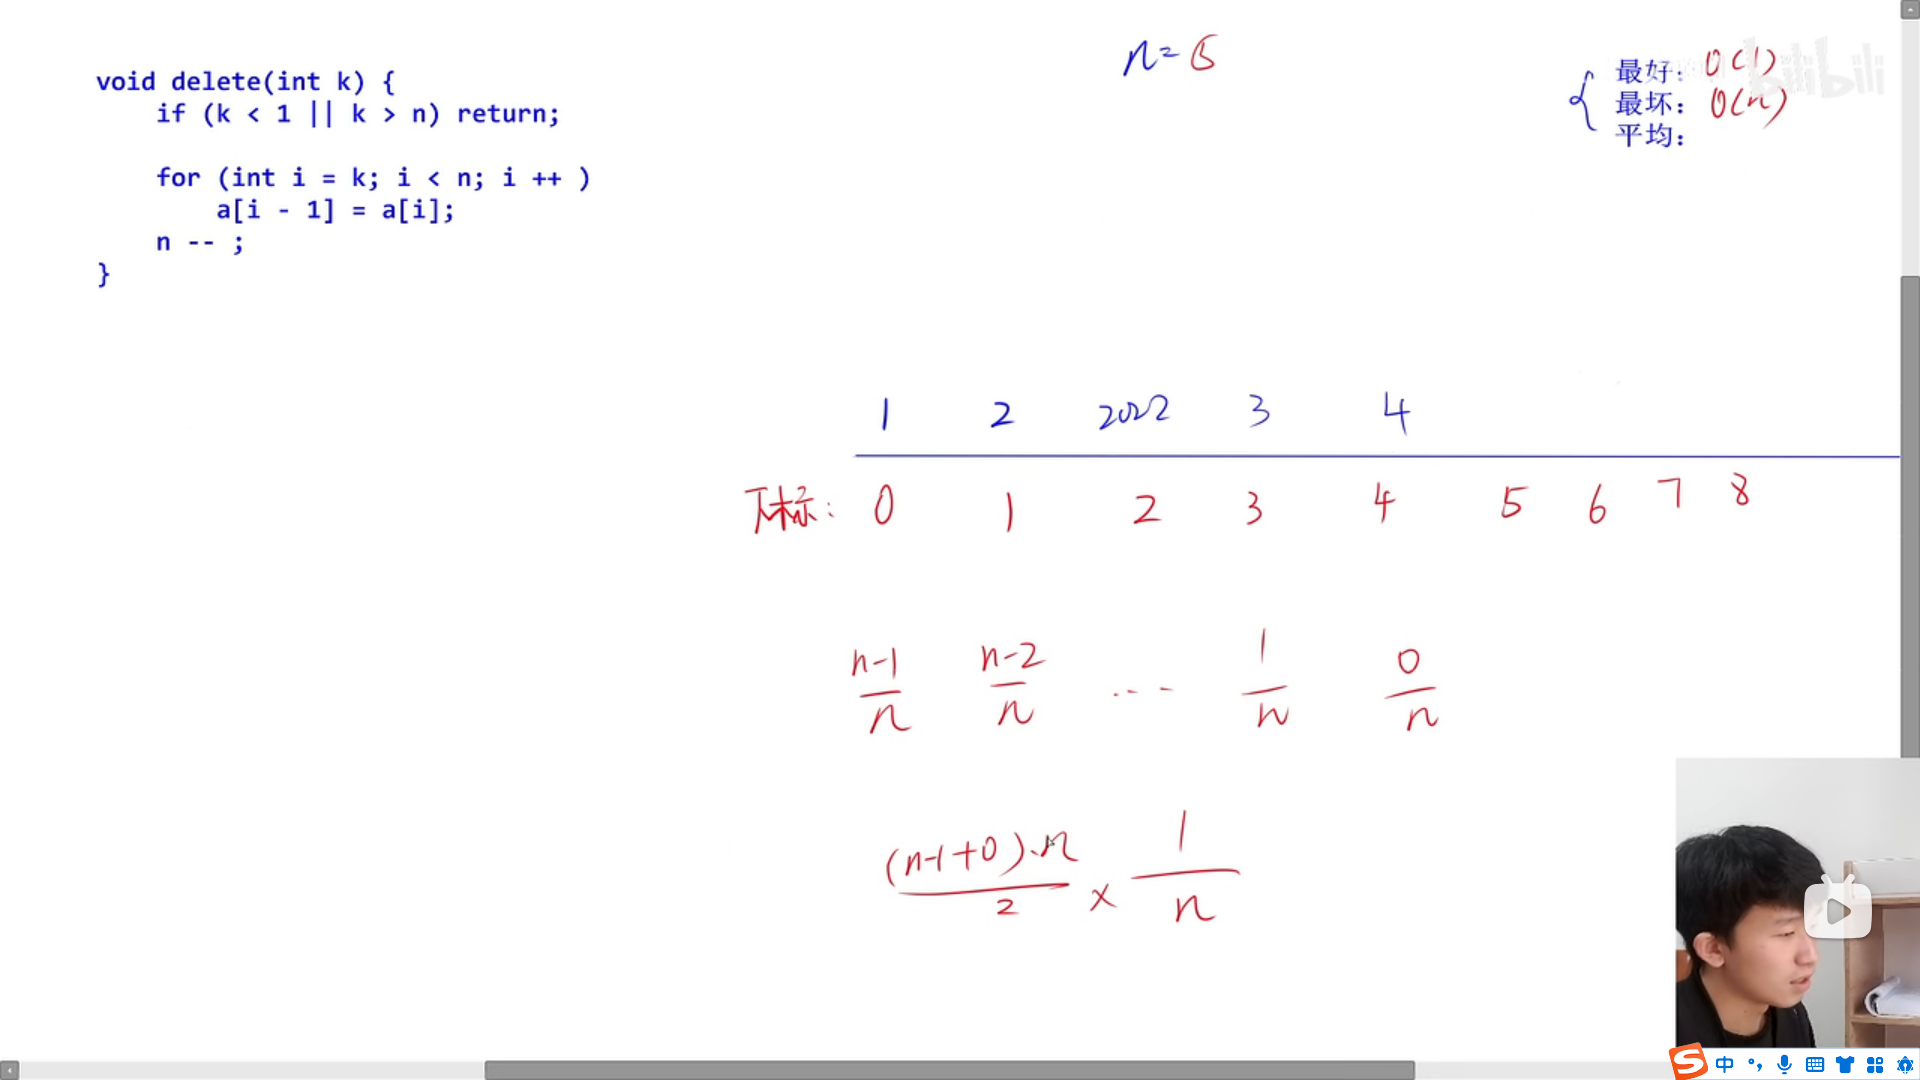 void delete(int k) {
if (k < 1 || k > n) return;
for (int i = k; i < n; i ++ )
a[i - 1] = a[i];
n -- ;
}
n=5
最好: O(1)
最坏: O(n)
平均:
bilibili
1 2 2022 3 4
下标: 0 1 2 3 4 5 6 7 8
n-1/n n-2/n ... 1/n 0/n
(n-1+0)·n/2 × 1/n
中